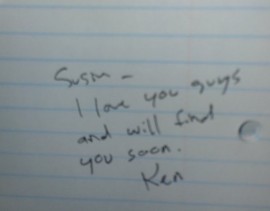 Susan –
I love you guys
and will find
you soon.
Ken